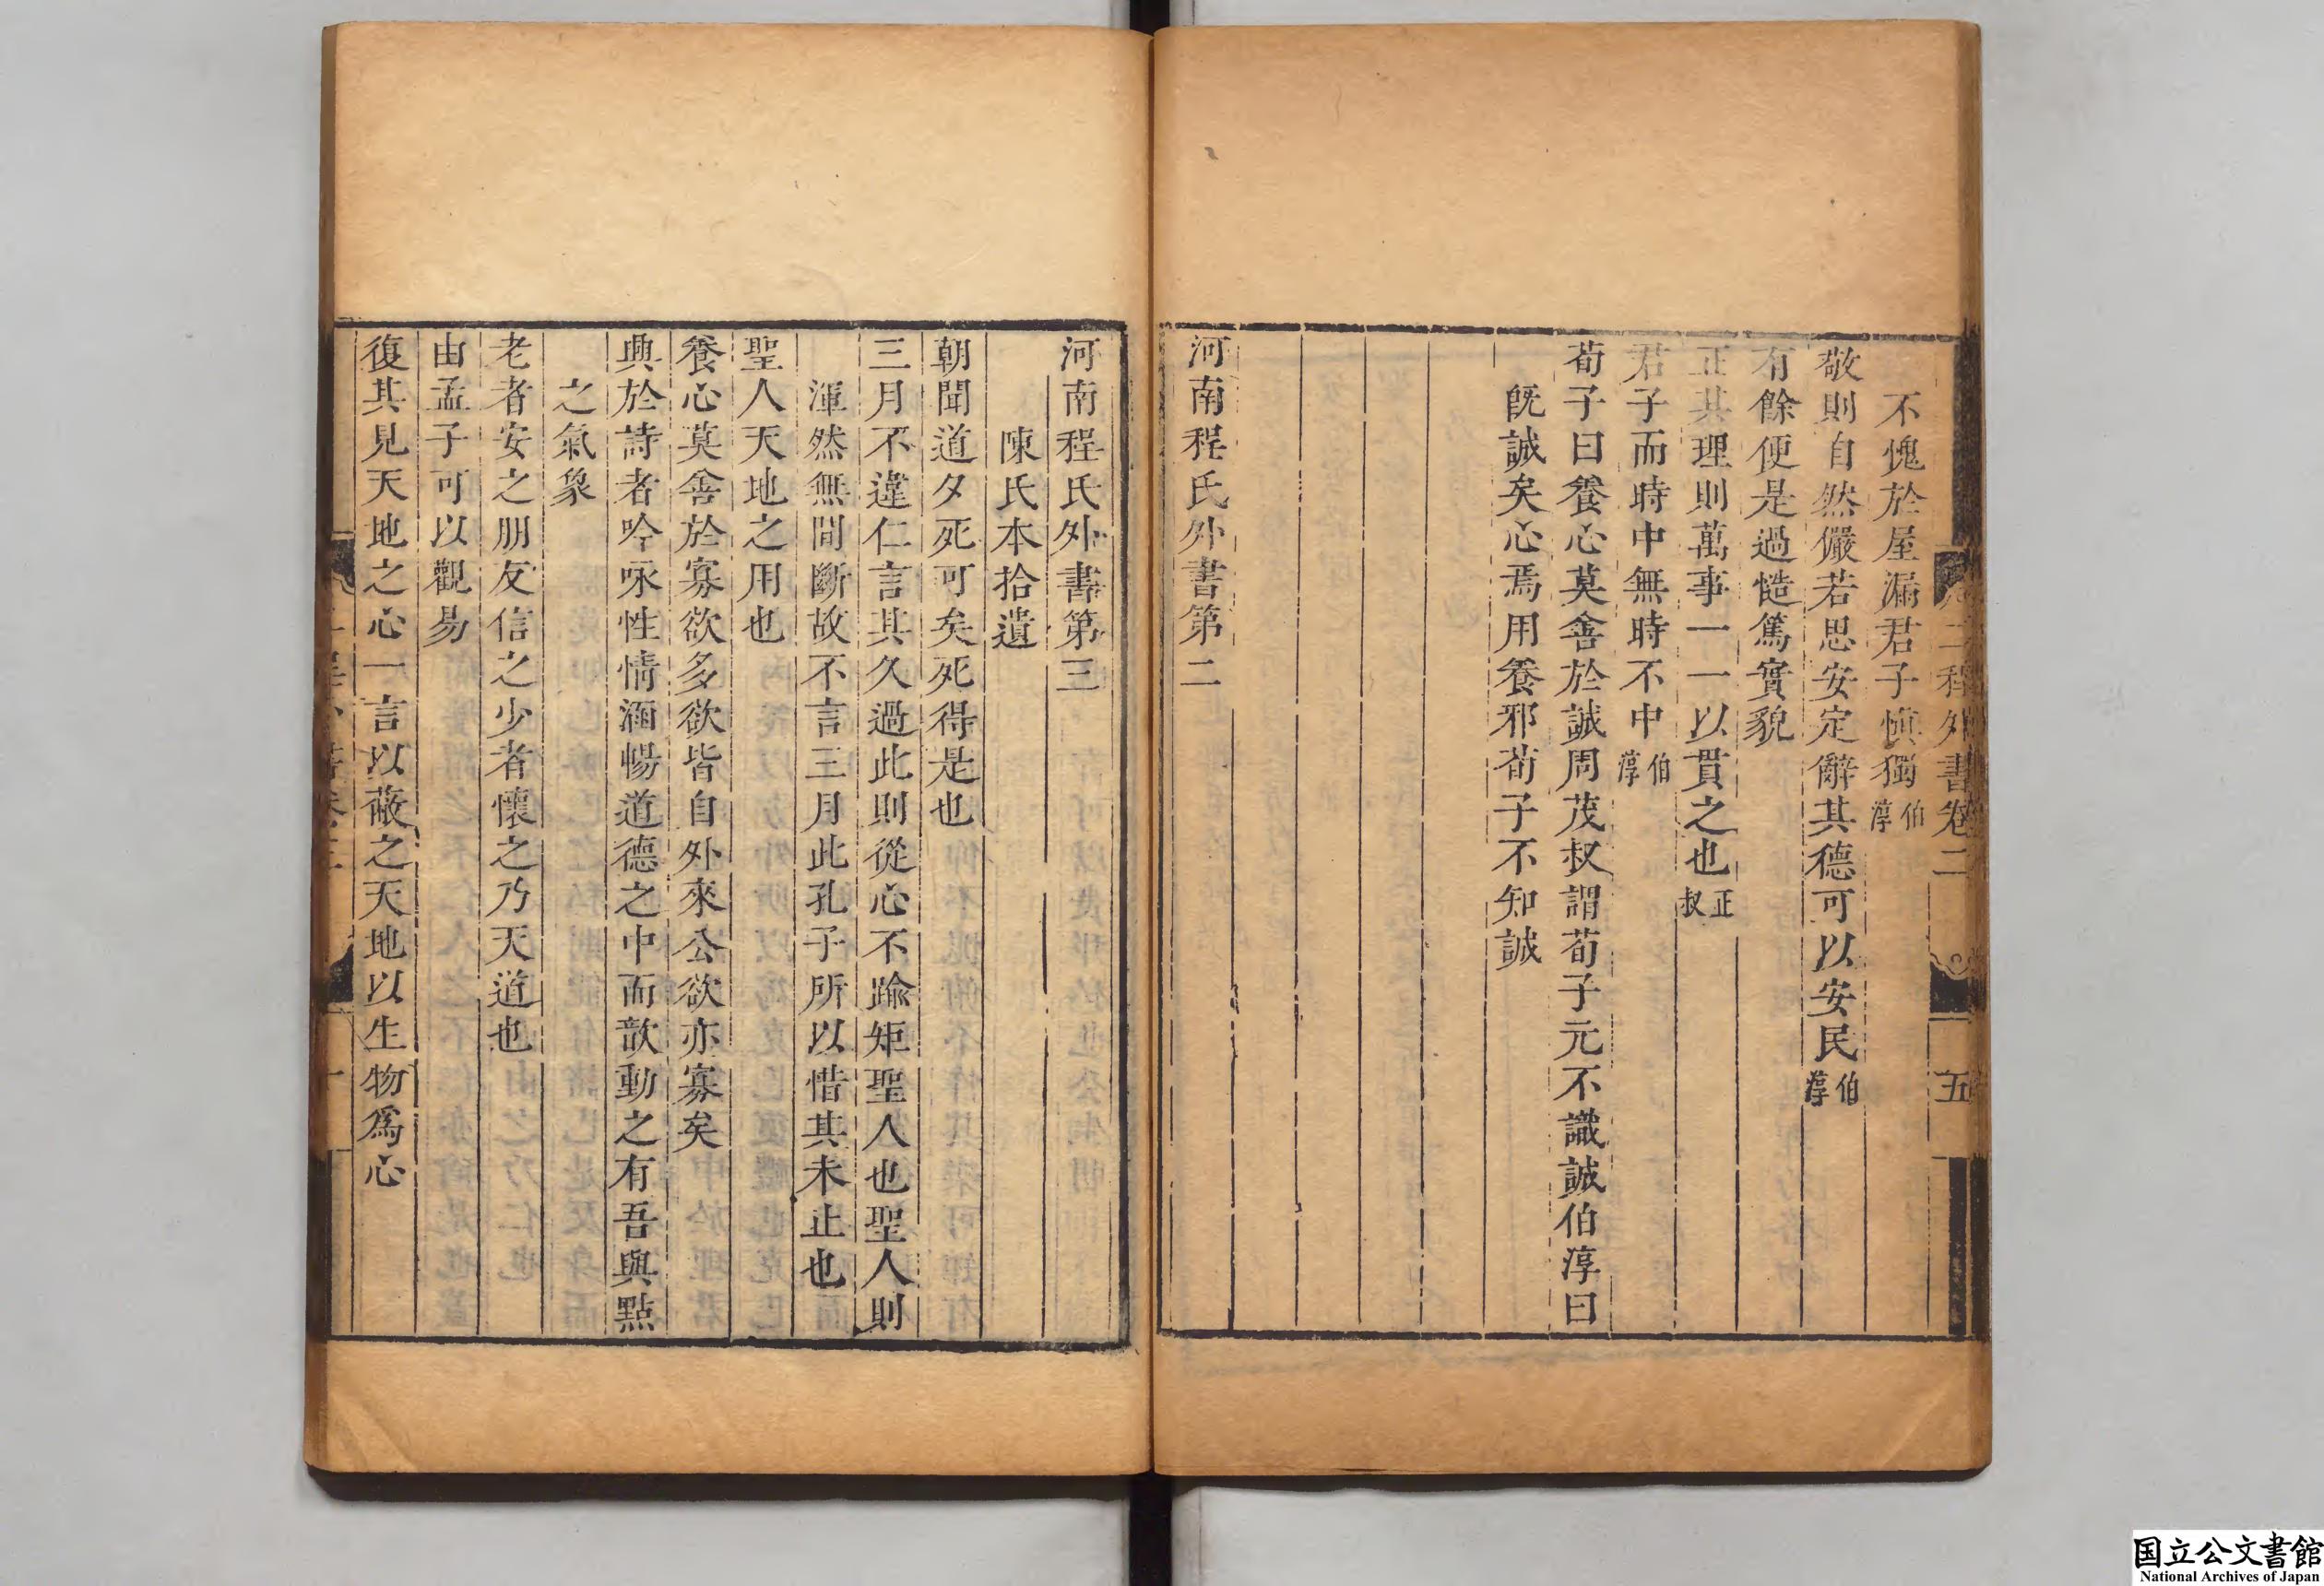 二程外書卷二 五
不愧於屋漏君子慎獨伯淳
敬則自然儼若思安定辭其德可以安民伯淳
有餘便是過慥慥篤實貌
正其理則萬事一一以貫之也正叔
君子而時中無時不中伯淳
荀子曰養心莫善於誠周茂叔謂荀子元不識誠伯淳曰
既誠矣心焉用養邪荀子不知誠
河南程氏外書第二
河南程氏外書第三
陳氏本拾遺
朝聞道夕死可矣死得是也
三月不違仁言其久過此則從心不踰矩聖人也聖人則
渾然無間斷故不言三月此孔子所以惜其未止也
聖人天地之用也
養心莫善於寡欲多欲皆自外來公欲亦寡矣
興於詩者吟咏性情涵暢道德之中而歆動之有吾與點
之氣象
老者安之朋友信之少者懷之乃天道也
由孟子可以觀易
復其見天地之心一言以蔽之天地以生物爲心
国立公文書館
National Archives of Japan